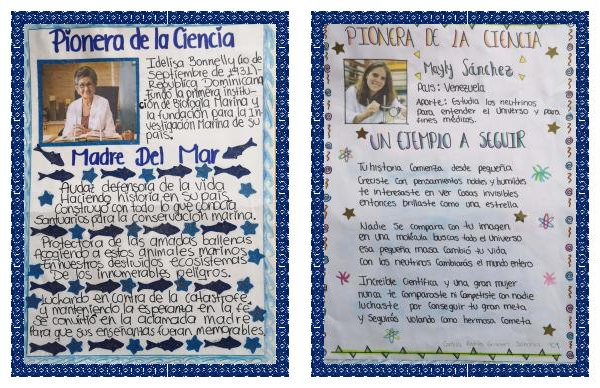 Pionera de la Ciencia
Idelisa Bonnelly (10 de
septiembre de 1931)-
República Dominicana
Fundó la primera institu-
ción de Biología Marina y
la fundación para la In-
vestigación Marina de su
país.
Madre Del Mar
Audaz defensora de la vida
Haciendo historia en su país
Construyó con todo lo que conocía
Santuarios para la conservación marina.
Protectora de las amadas ballenas
Acogiendo a estos animales marinos
En nuestros destruidos ecosistemas
De los innumerables peligros.
Luchando en contra de la catástrofe
y manteniendo la esperanza en la fe
Se convirtió en la aclamada madre
Para que sus enseñanzas fueran memorables.
PIONERA DE LA CIENCIA
Mayly Sánchez
País: Venezuela
Aporte: Estudia los neutrinos
para entender el Universo y para
fines médicos.
UN EJEMPLO A SEGUIR
Tu historia Comienza desde pequeña
Creciste con pensamientos nobles y humildes
te interesaste en ver Cosas invisibles
entonces brillaste como una estrella
Nadie Se compara con tu imagen
en una molécula buscas todo el Universo
esa pequeña masa Cambió tu vida
Con los neutrinos Cambiarás el mundo entero
Increíble Científica y una gran mujer
nunca te comparaste ni Competiste con nadie
luchaste por Conseguir tu gran meta
y Seguirás volando como hermosa Cometa